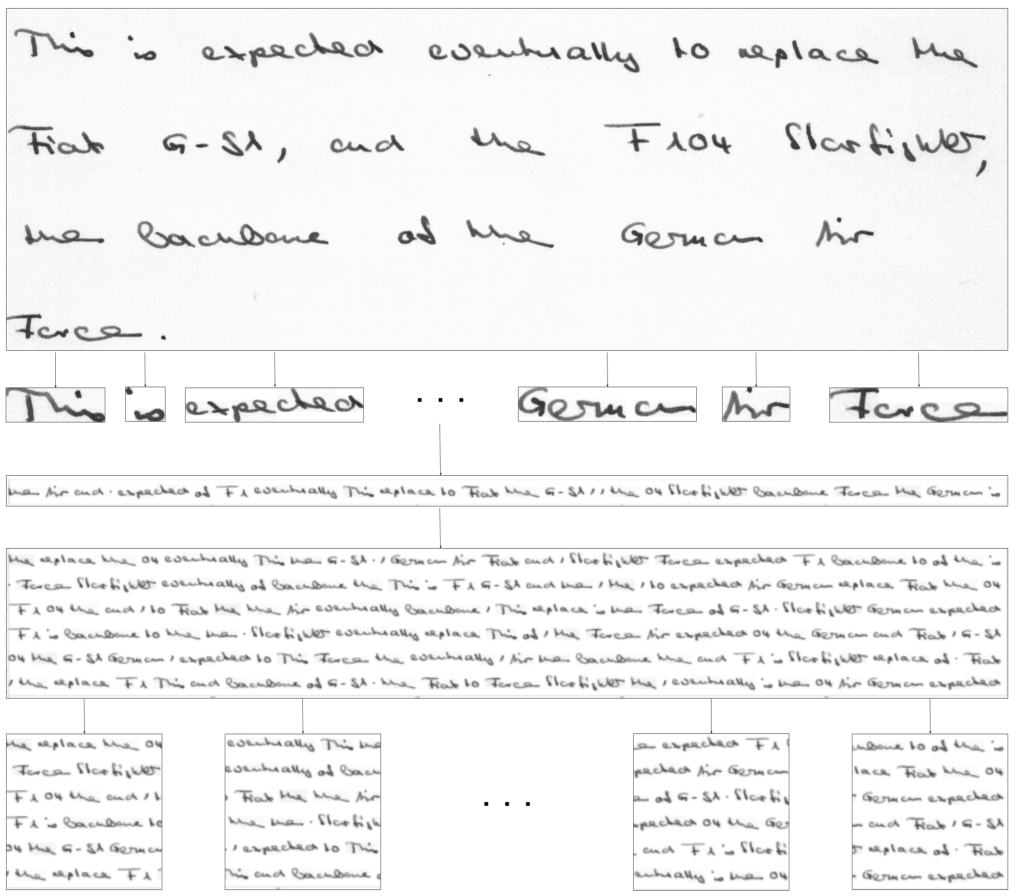 This is expected eventually to replace the
Fiat G-S1, and the F104 Starfighter,
the backbone of the German Air
Force.
This is expected ... German Air Force
the Air and . expected of F 1 eventually This replace to Fiat the G-S1 , , the 04 Starfighter backbone Force the German is
the replace the 04 eventually This the G-S1 . , German Air Fiat and , Starfighter Force expected F 1 backbone to of the is
. Force Starfighter eventually of backbone the This is F 1 G-S1 and the , the , to expected Air German replace Fiat the 04
F 1 04 the and , to Fiat the the Air eventually backbone , This replace is the Force of G-S1 . Starfighter German expected
F 1 is backbone to the the . Starfighter eventually replace This of , the Force Air expected 04 the German and Fiat , G-S1
04 the G-S1 German , expected to This Force the eventually , Air the backbone the and F 1 is Starfighter replace of . Fiat
, the replace F 1 This and backbone of G-S1 . the Fiat to Force Starfighter the , eventually is the 04 Air German expected
the replace the 04
Force Starfighter
F 1 04 the and , t
F 1 is backbone to
04 the G-S1 German
, the replace F 1
eventually This the
eventually of back
, Fiat the the Air
the the . Starfigh
, expected to This
This and backbone o
... 
e expected F 1
pected Air German
e of G-S1 . Starfig
expected 04 the Ger
and F 1 is Starfi
entually is the 04
ckbone to of the is
lace Fiat the 04
German expected
and Fiat , G-S1
replace of . Fiat
German expected